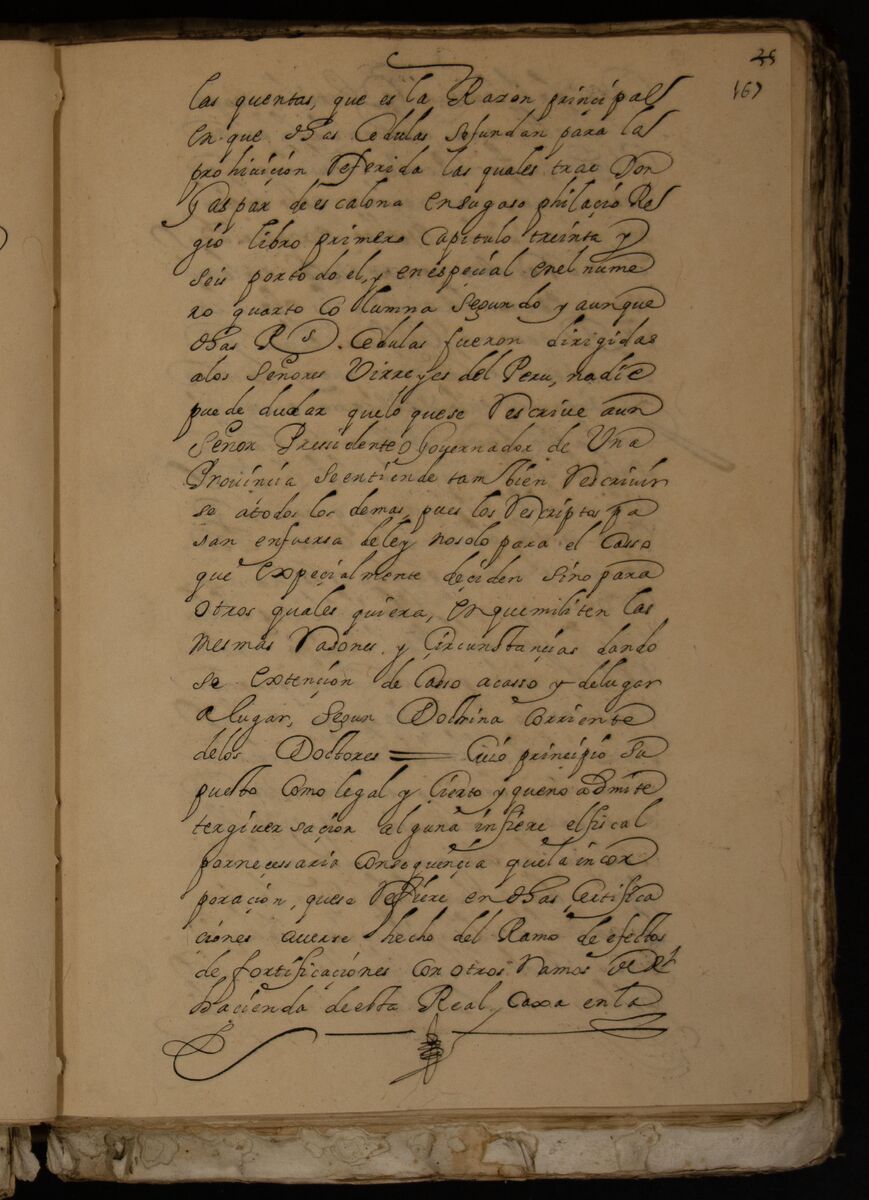 25
167
las quentas, que es la Razon principal
en que dhas Cedulas se fundan para la
prohiuicion Referida las quales trae Don
Gaspar de escalona en su gasophilacio Re
gio libro primero Capitulo treinta y
seis por todo el, y en especial en el nume
ro quarto Collumna Segundo y aunque
dhas Rs. Cedulas fueron dirigidas
a los Señores Virreyes del Peru, nadie
puede dudar que lo que se Rescriue a un
Señor Pressidente o Gouernador de Una
Prouincia se entiende tambien Rescriuir
se a todos los demas, pues los Rescriptos pa
san en fuersa de ley no solo para el Casso
que expecialmente deçiden sino para
otros quales quiera, en que militen las
mesmas Rasones, y Çircunstançias dando
se extençion de Casso a casso y de lugar
a lugar, Segun Doctrina Corriente
de los Doctores = Cuio principio su
puesto como legal y Çierto y que no admite
tergiuersaçion alguna infiere el fiscal
por necessaria Consequençia que la incor
poraçion, que se Refiere en dhas Çertifica
ciones auerse hecho del Ramo de efectos
de fortificaçiones con otros Ramos de Rl
haçienda de esta Real Caxa en la